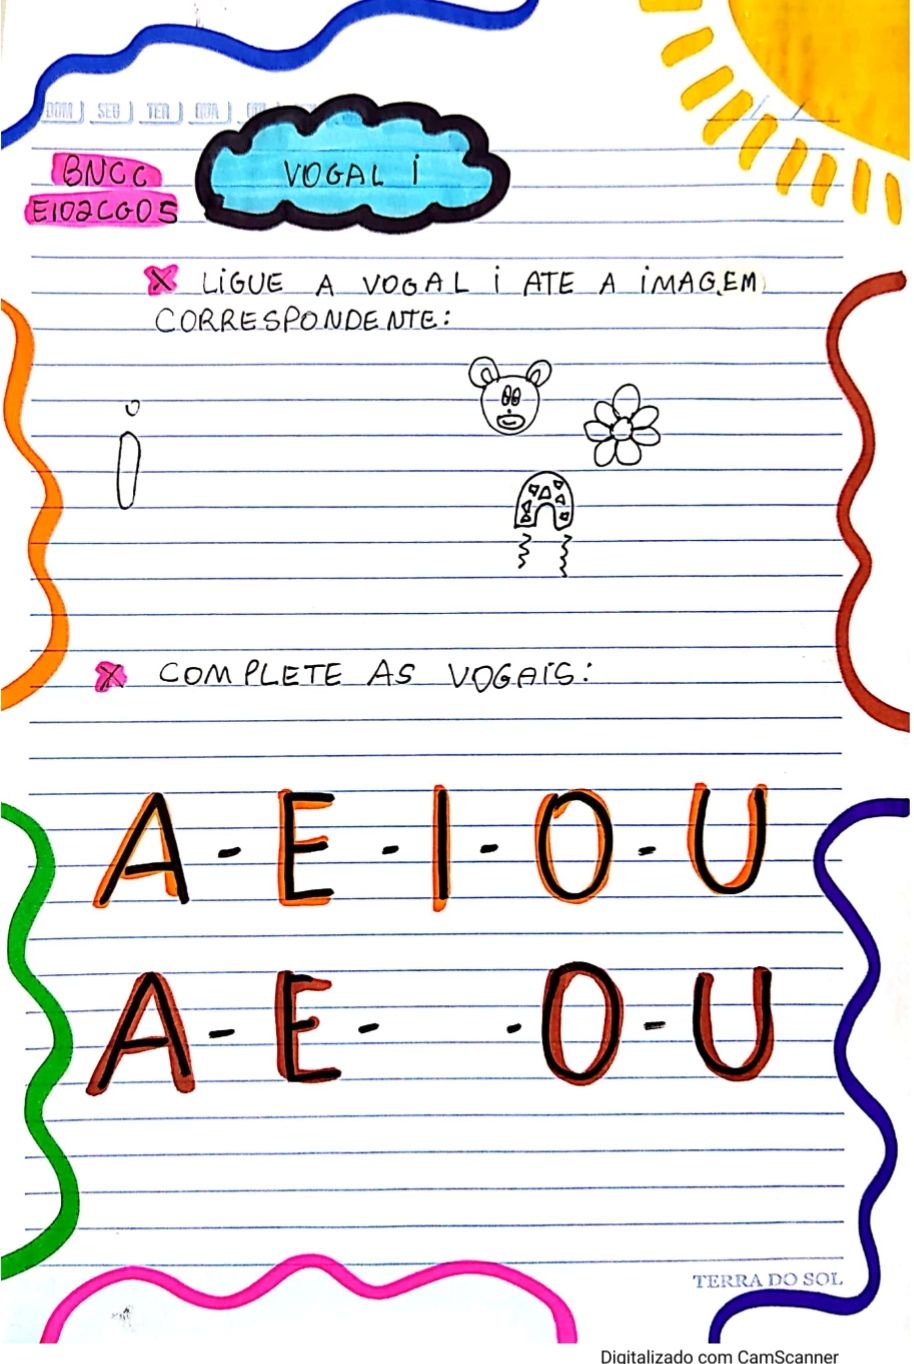 DOM SEG TER QUA
BNCC
EI02CG05
VOGAL i
X LiGUE A VOGAL i ATE A iMAGEM
CORRESPONDENTE:
i
X COMPLETE AS VOGAiS:
A - E - I - O - U
A - E - - O - U
TERRA DO SOL
Digitalizado com CamScanner